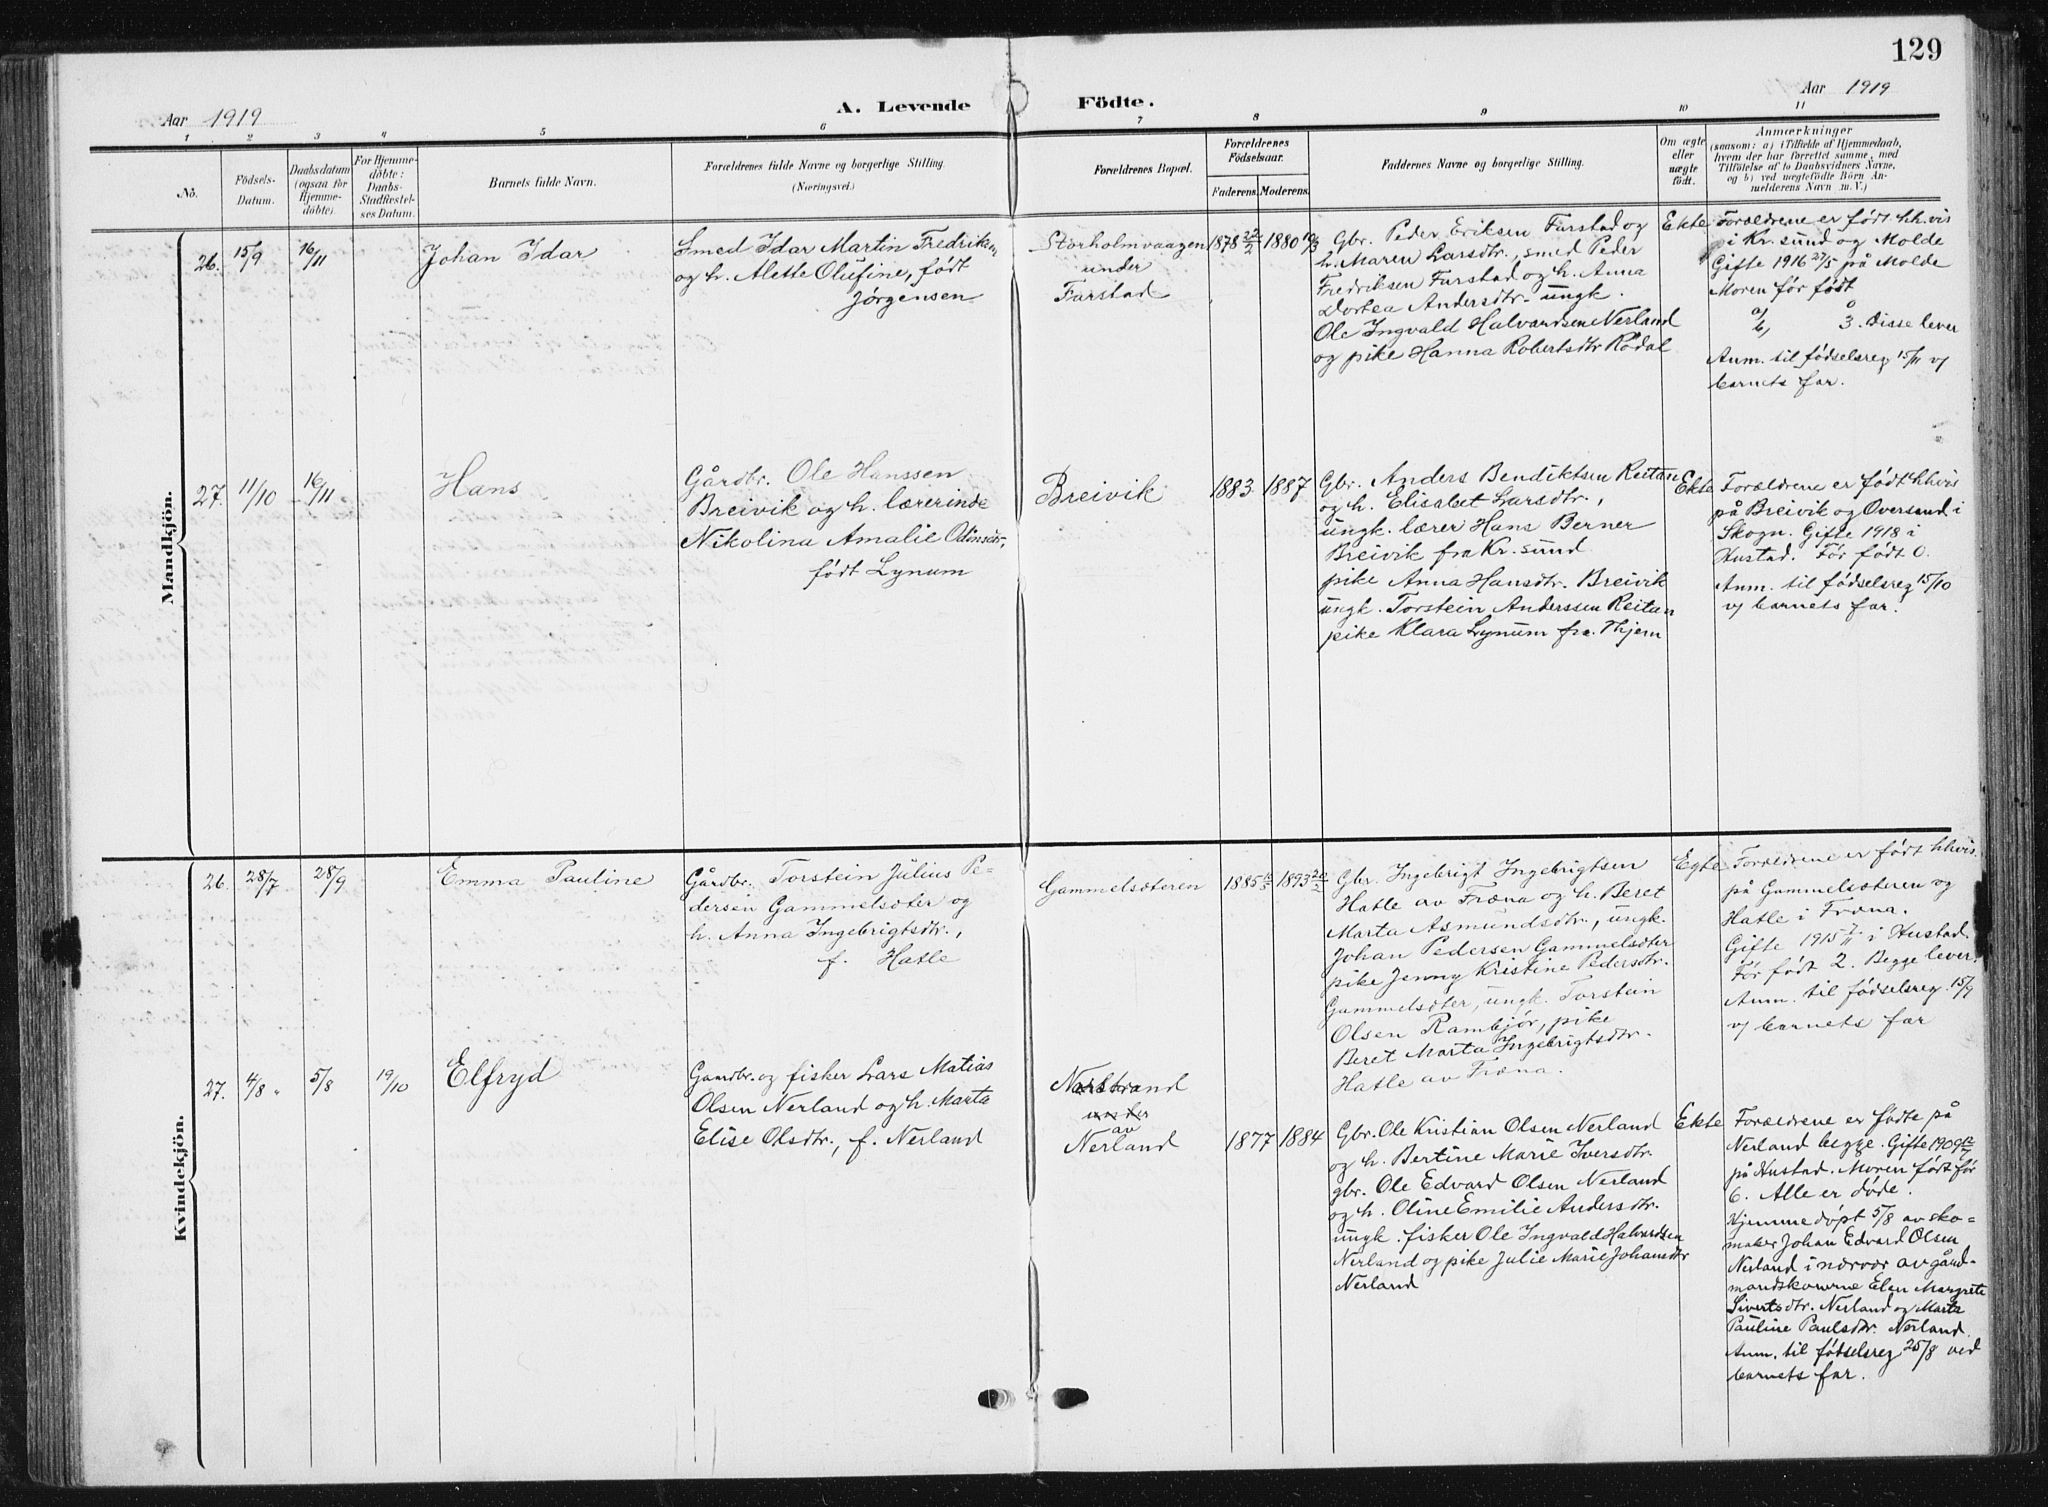 129
Aar 1919
A. Levende Födte.
Aar 1919
1 2 3 4 5 6 7 8 9 10 11
No.
Födsels-
Datum.
Daabsdatum
(ogsaa for
Hjemme-
döbte).
For Hjemme-
döbte:
Daabs-
Stadfæstel-
ses Datum.
Barnets fulde Navn.
Forældrenes fulde Navne og borgerlige Stilling.
(Næringsvei.)
Forældrenes Bopæl.
Forældrenes
Födselsaar.
Faderens. Moderens.
Faddernes Navne og borgerlige Stilling.
Om ægte
eller
uægte
födt.
Anmærkninger
(saasom: a) i Tilfælde af Hjemmedaab,
hvem der har forrettet samme, med
Tilföielse af to Daabsvidners Navne,
og b) ved uægtefödte Börn An-
melderens Navn m. V.)
Mandkjön.
26. 15/9 16/11
Johan Idar
Smed Idar Martin Fredriksen
og h. Alette Olufine, født
Jørgensen
Storholmvaagen
under
Farstad
1878 22/2 1880 10/3
Gbr. Peder Eriksen Furstad og
h. Maren Larsdtr., smed Peder
Fredriksen Furstad og h. Anna
Dortea Andersdtr. ungk.
Ole Ingvald Halvardsen Nerland
og pike Hanna Robertsdtr Rødal
Ekte
Forældrene er født hh.vis
i Kr.sund og Molde
Gifte 1916 27/5 på Molde
Moren før født
a/ 0
b/ 3. Disse lever
Anm. til fødselsreg 15/11 v/
barnets far.
27. 11/10 16/11
Hans
Gårdbr. Ole Hanssen
Breivik og h. lærerinde
Nikolina Amalie Odinsdtr,
født Lynum
Breivik
1883 1887
Gbr. Anders Bendiktsen Reitan
og h. Elisabet Larsdtr,
ungk. lærer Hans Berner
Breivik fra Kr.sund
pike Anna Hansdtr. Breivik
ungk. Torstein Anderssen Reitan
pike Klara Lynum fra
Ekte
Forældrene er født hhvis
på Breivik og Oversand i
Skogn. Gifte 1918 i
Hustad. Før født 0.
Anm. til fødselsreg 15/10
v/ barnets far.
Kvindekjön.
26. 28/7 28/9
Emma Pauline
Gårdbr. Torstein Julius Pe-
dersen Gammelsæter og
h. Anna Ingebrigtsdtr.,
f. Hatle
Gammelsæteren
1885 1893 20/2
Gbr. Ingebrigt Ingebrigtsen
Hatle av Fræna og h. Beret
Marta Asmundsdtr., ungk.
Johan Pedersen Gammelsæter
pike Jenny Kristine Pedersdtr.
Gammelsæter, ungk. Torstein
Olsen Rambjør, pike
Beret Marta Ingebrigtsdtr.
Hatle av Fræna.
Egte
Forældrene er født hhvis.
på Gammelsæteren og
Hatle i Fræna.
Gifte 1915 7/11 i Hustad.
Før født 2. Begge lever.
Anm. til fødselsreg. 15/9
v/ barnets far
27. 4/8 5/8 19/10
Elfryd
Gaardbr. og fisker Lars Matias
Olsen Nerland og h. Marta
Elise Olsdtr., f. Nerland
Norstrand
under
av
Nerland
1877 1884
Gbr. Ole Kristian Olsen Nerland
og h. Bertine Marie Iversdtr.
gbr. Ole Edvard Olsen Nerland
og h. Oline Emilie Andersdtr.
ungk. fisker Ole Ingvald Halvardsen
Nerland og pike Julie Marie Johansdtr
Nerland
Ekte
Forældrene er fødte på
Nerland begge. Gifte 1909
på Hustad. Moren født før
6. Alle er døde.
Hjemmedøpt 5/8 av sko-
maker Johan Edvard Olsen
Nerland i nærvær av gård-
mandskonerne Elen Margrete
Sivertsdtr. Nerland og Marta
Pauline Paulsdtr. Nerland.
Anm. til fødselsreg 25/8 ved
barnets far.